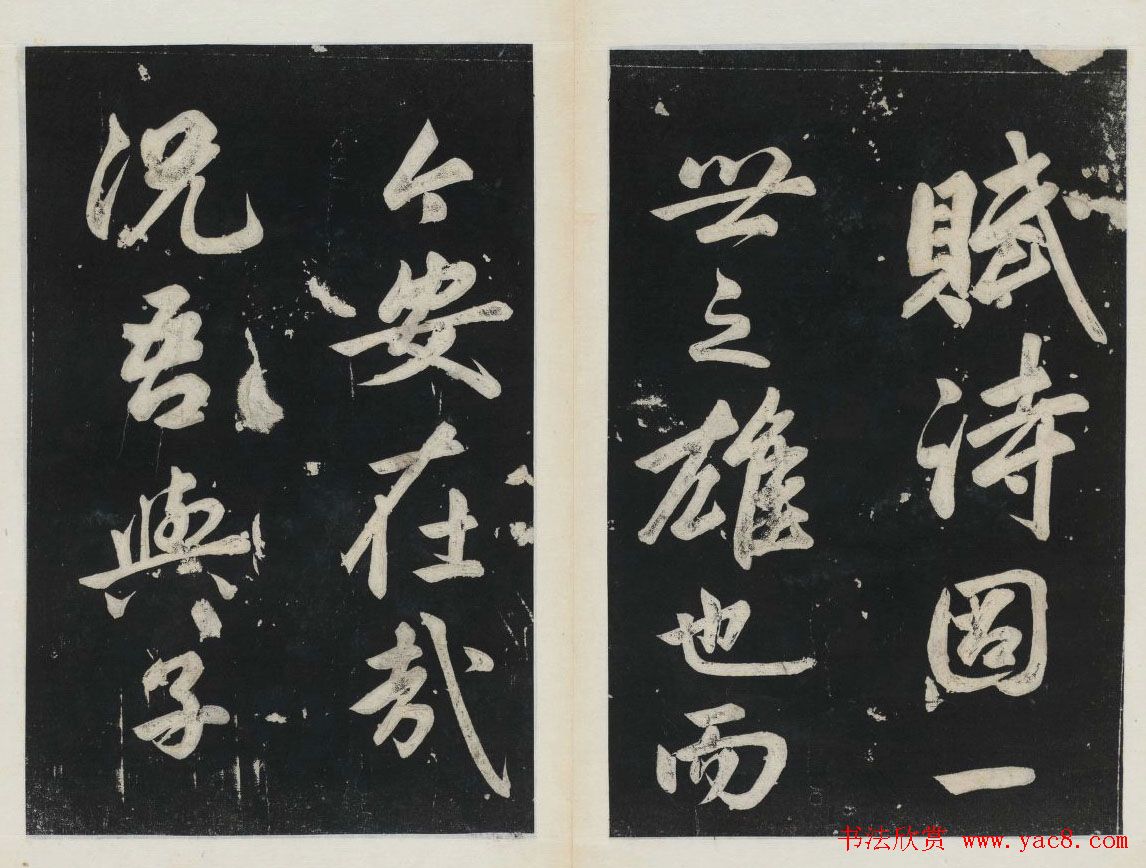 賦詩固一
世之雄也而
今安在哉
況吾與子
书法欣赏 www.yac8.com